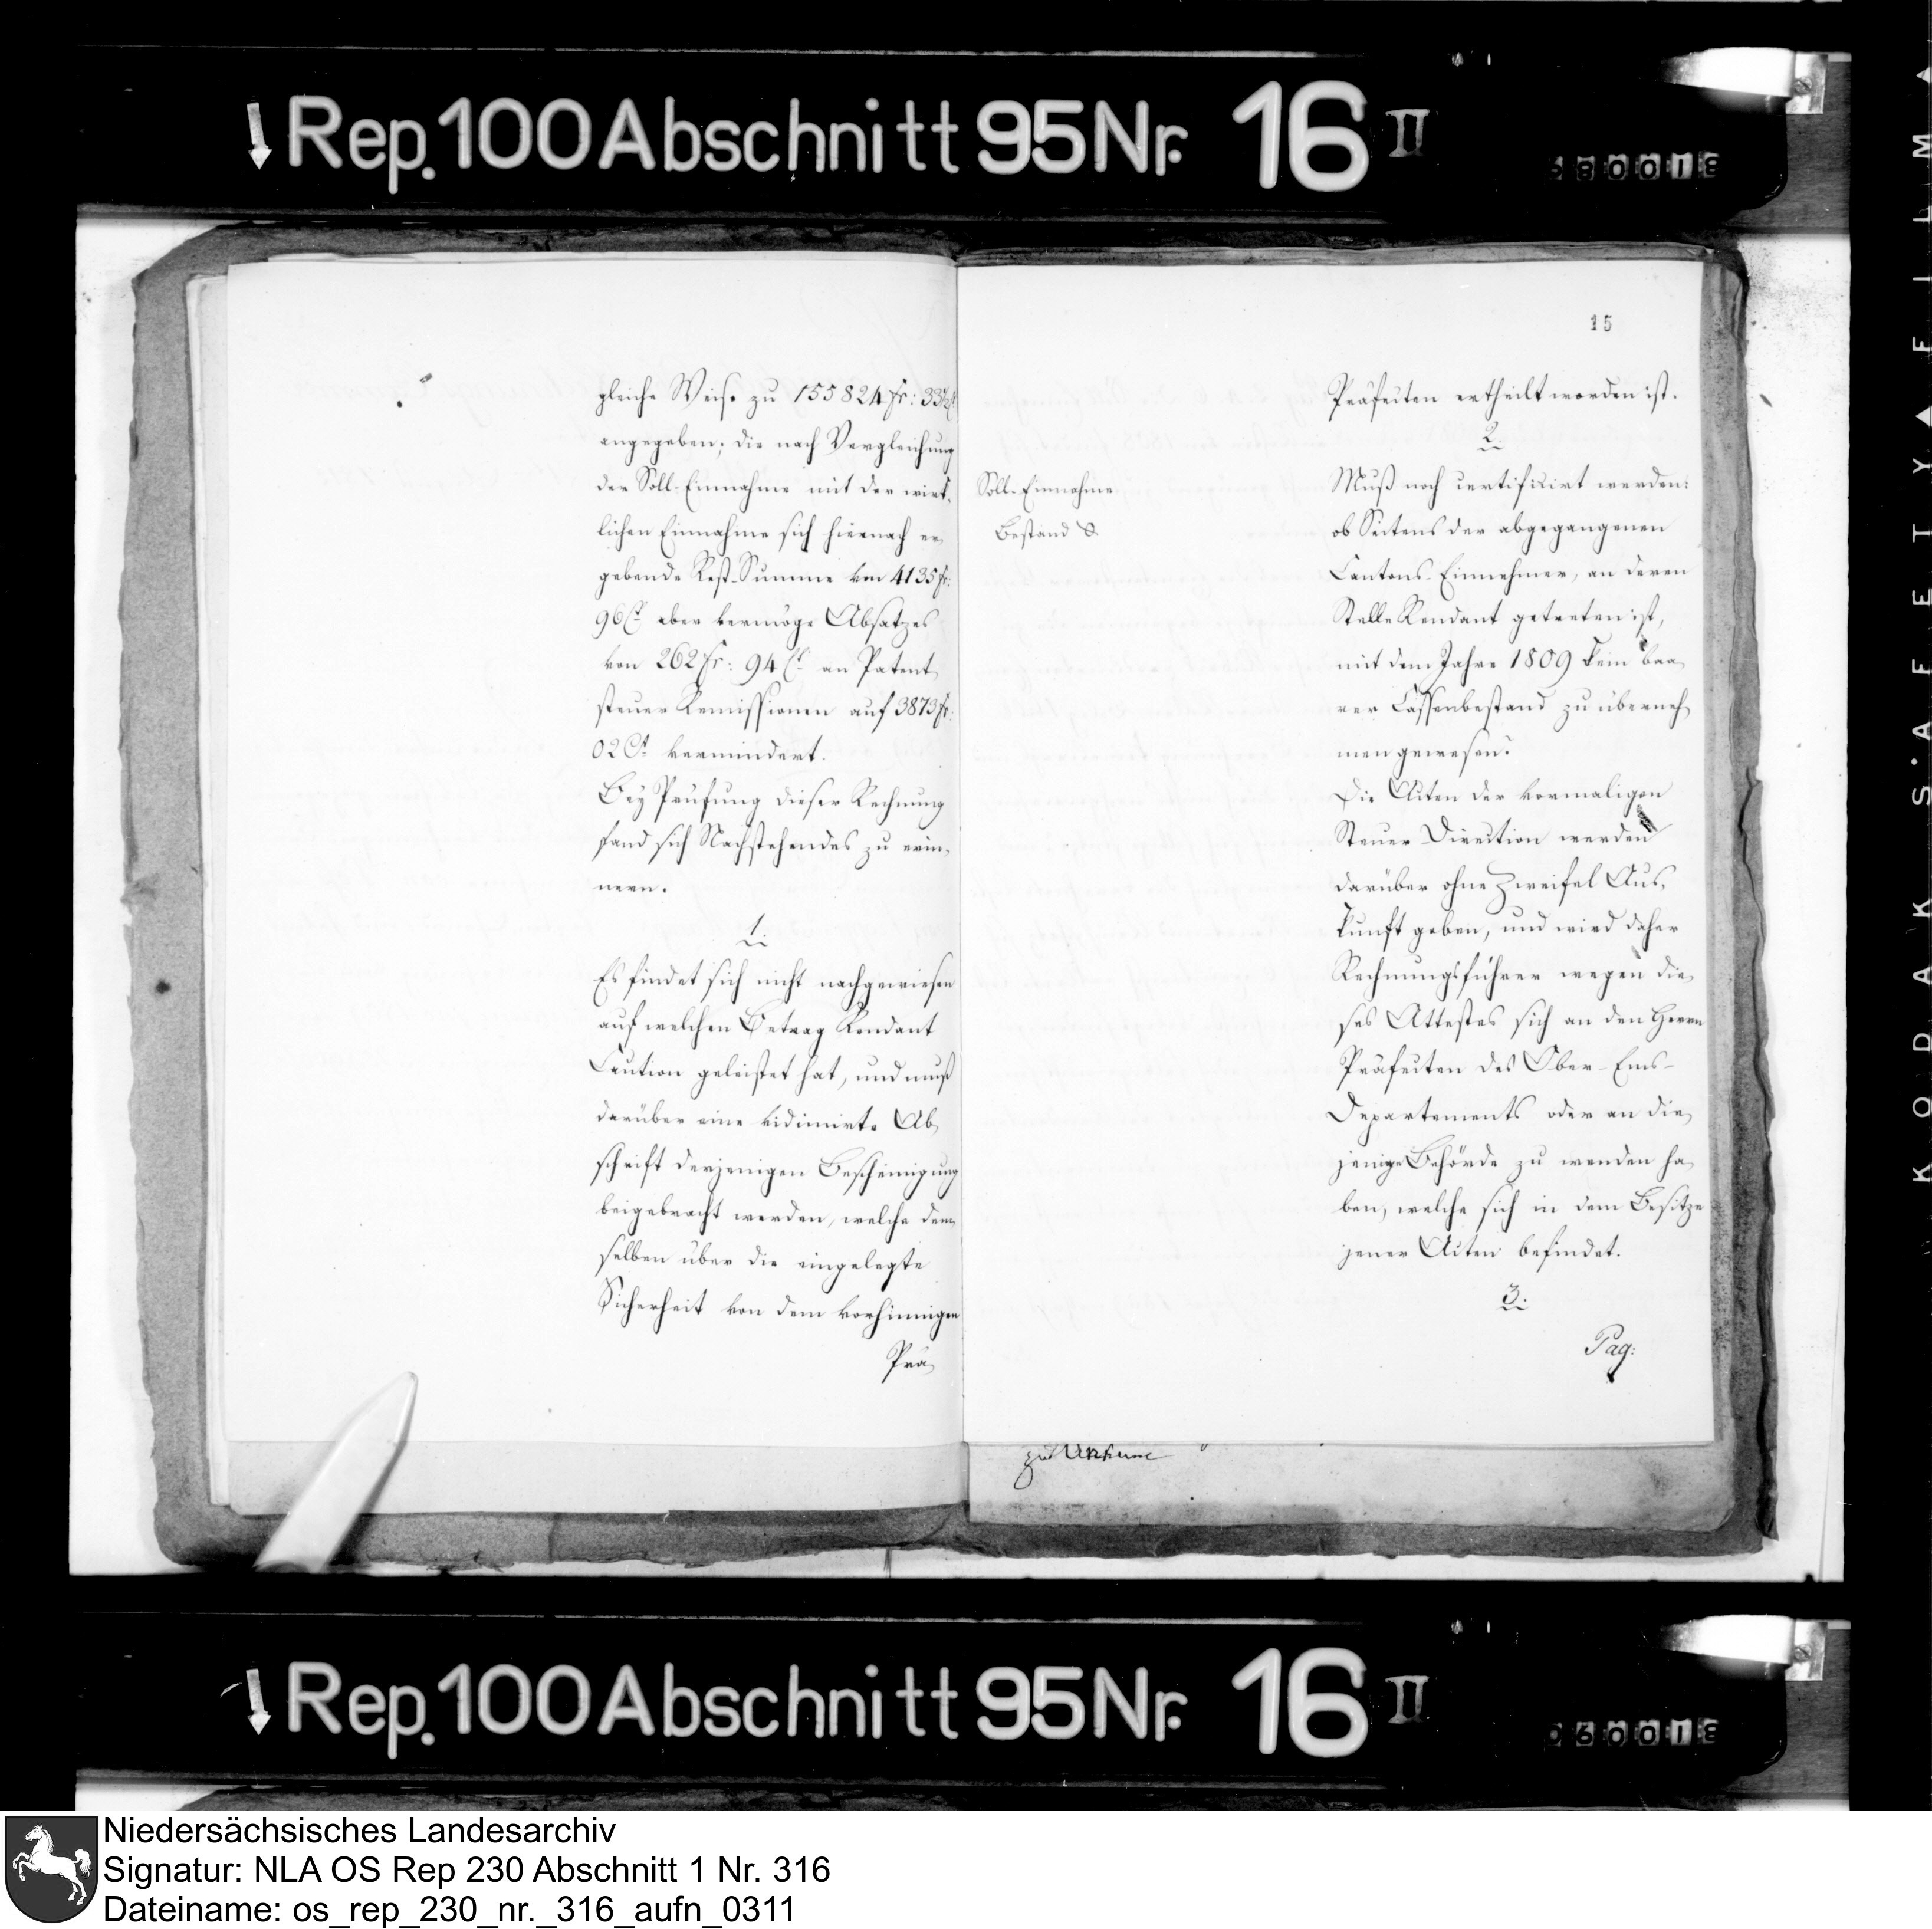 Rep. 100 Abschnitt 95 Nr. 16 II
gleiche Weise zu 155824 fr: 33½ Ct
angegeben; die nach Vergleichung
der Soll-Einnahme mit der wirk,
lichen Einnahme sich hiernach er,
gebende Rest-Summe von 4135 fr:
96 Ct aber vermöge Absatzes
von 262 fr: 94 Ct an Patent,
steuer Remissionen auf 3873 fr:
02 Ct vermindert.
Bey Prüfung dieser Rechnung
fand sich Nachstehendes zu erin,
nern.
1.
Es findet sich nicht nachgewiesen
auf welchen Betrag Rendant
Caution geleistet hat, und muß
darüber eine vidimirte Ab,
schrift derjenigen Bescheinigung
beigebracht werden, welche dem,
selben über die eingelegte
Sicherheit von dem vorhinnigen
Prä,
15
Präfecten ertheilt worden ist.
2.
Soll-Einnahme
Bestand &
Muß noch certificirt werden:
ob Seitens der abgegangenen
Cantons-Einnehmer, an deren
Stelle Rendant getreten ist,
mit dem Jahre 1809 kein baa,
rer Cassenbestand zu überneh,
men gewesen?
Die Acten der vormaligen
Steuer-Direction werden
darüber ohne Zweifel Aus,
kunft geben, und wird daher
Rechnungsführer wegen die,
ses Attestes sich an den Herrn
Präfecten des Ober-Ems-
Departements oder an die,
jenige Behörde zu wenden ha,
ben, welche sich in dem Besitze
jener Acten befindet.
3.
Pag:
Rep. 100 Abschnitt 95 Nr. 16 II
KODAK SAFETY FILM
Niedersächsisches Landesarchiv
Signatur: NLA OS Rep 230 Abschnitt 1 Nr. 316
Dateiname: os_rep_230_nr._316_aufn_0311